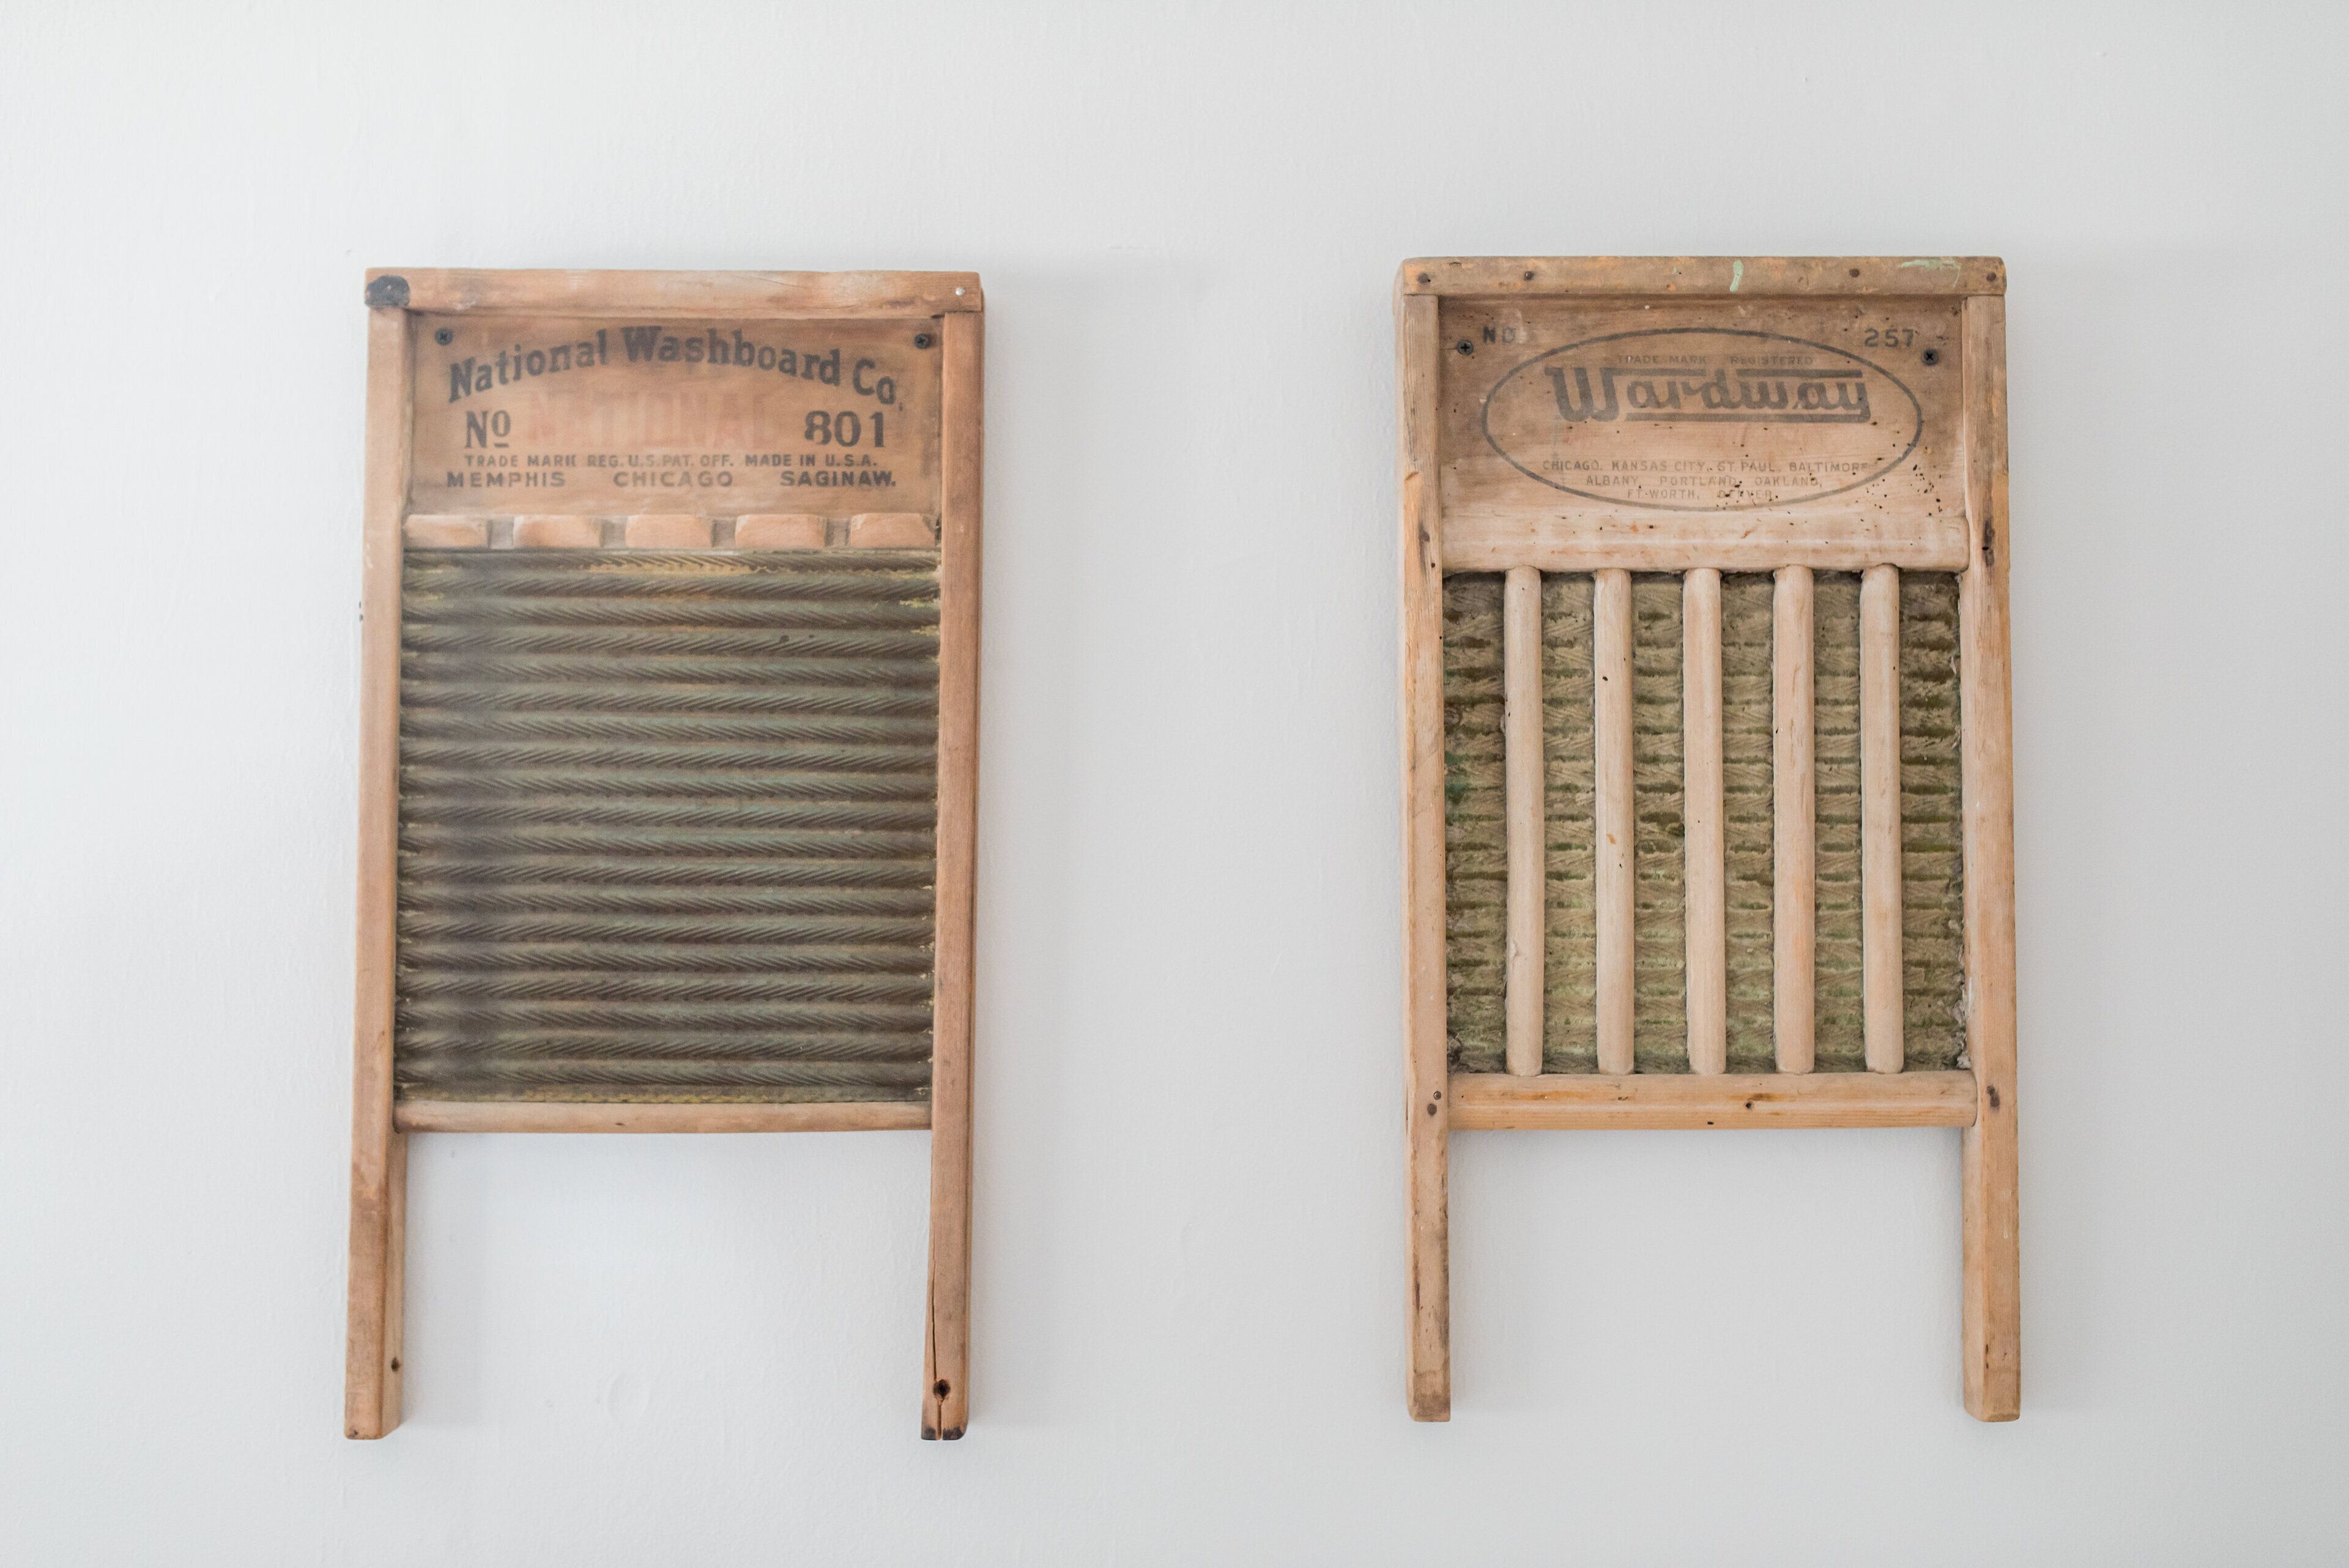 National Washboard Co.
No NATIONAL 801
TRADE MARK REG. U.S. PAT. OFF. MADE IN U.S.A.
MEMPHIS CHICAGO SAGINAW.
NO 257
TRADE MARK REGISTERED
Wardway
CHICAGO, KANSAS CITY, ST PAUL, BALTIMORE
ALBANY, PORTLAND, OAKLAND,
FT. WORTH, DENVER